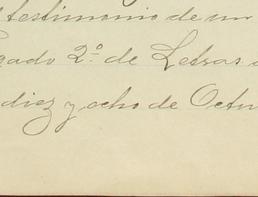 testimonio de un
gado 2º de Letras
diez y ocho de Octu